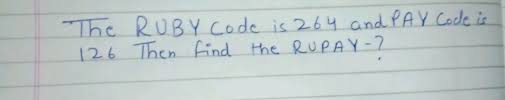 The RUBY Code is 264 and PAY Code is
126 Then find the RUPAY-?